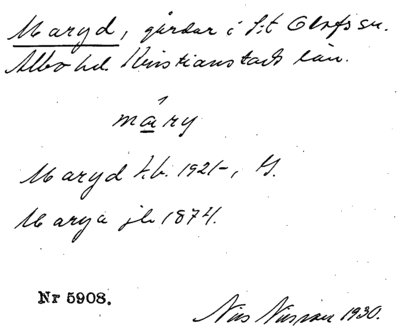 Maryd, gårdar i S:t Olofs sn.
Albo hd. Kristianstads län.
màry
Maryd t.b. 1921-,
Marya jb 1874.
Nr 5908.
Nils Nilsson 1930.